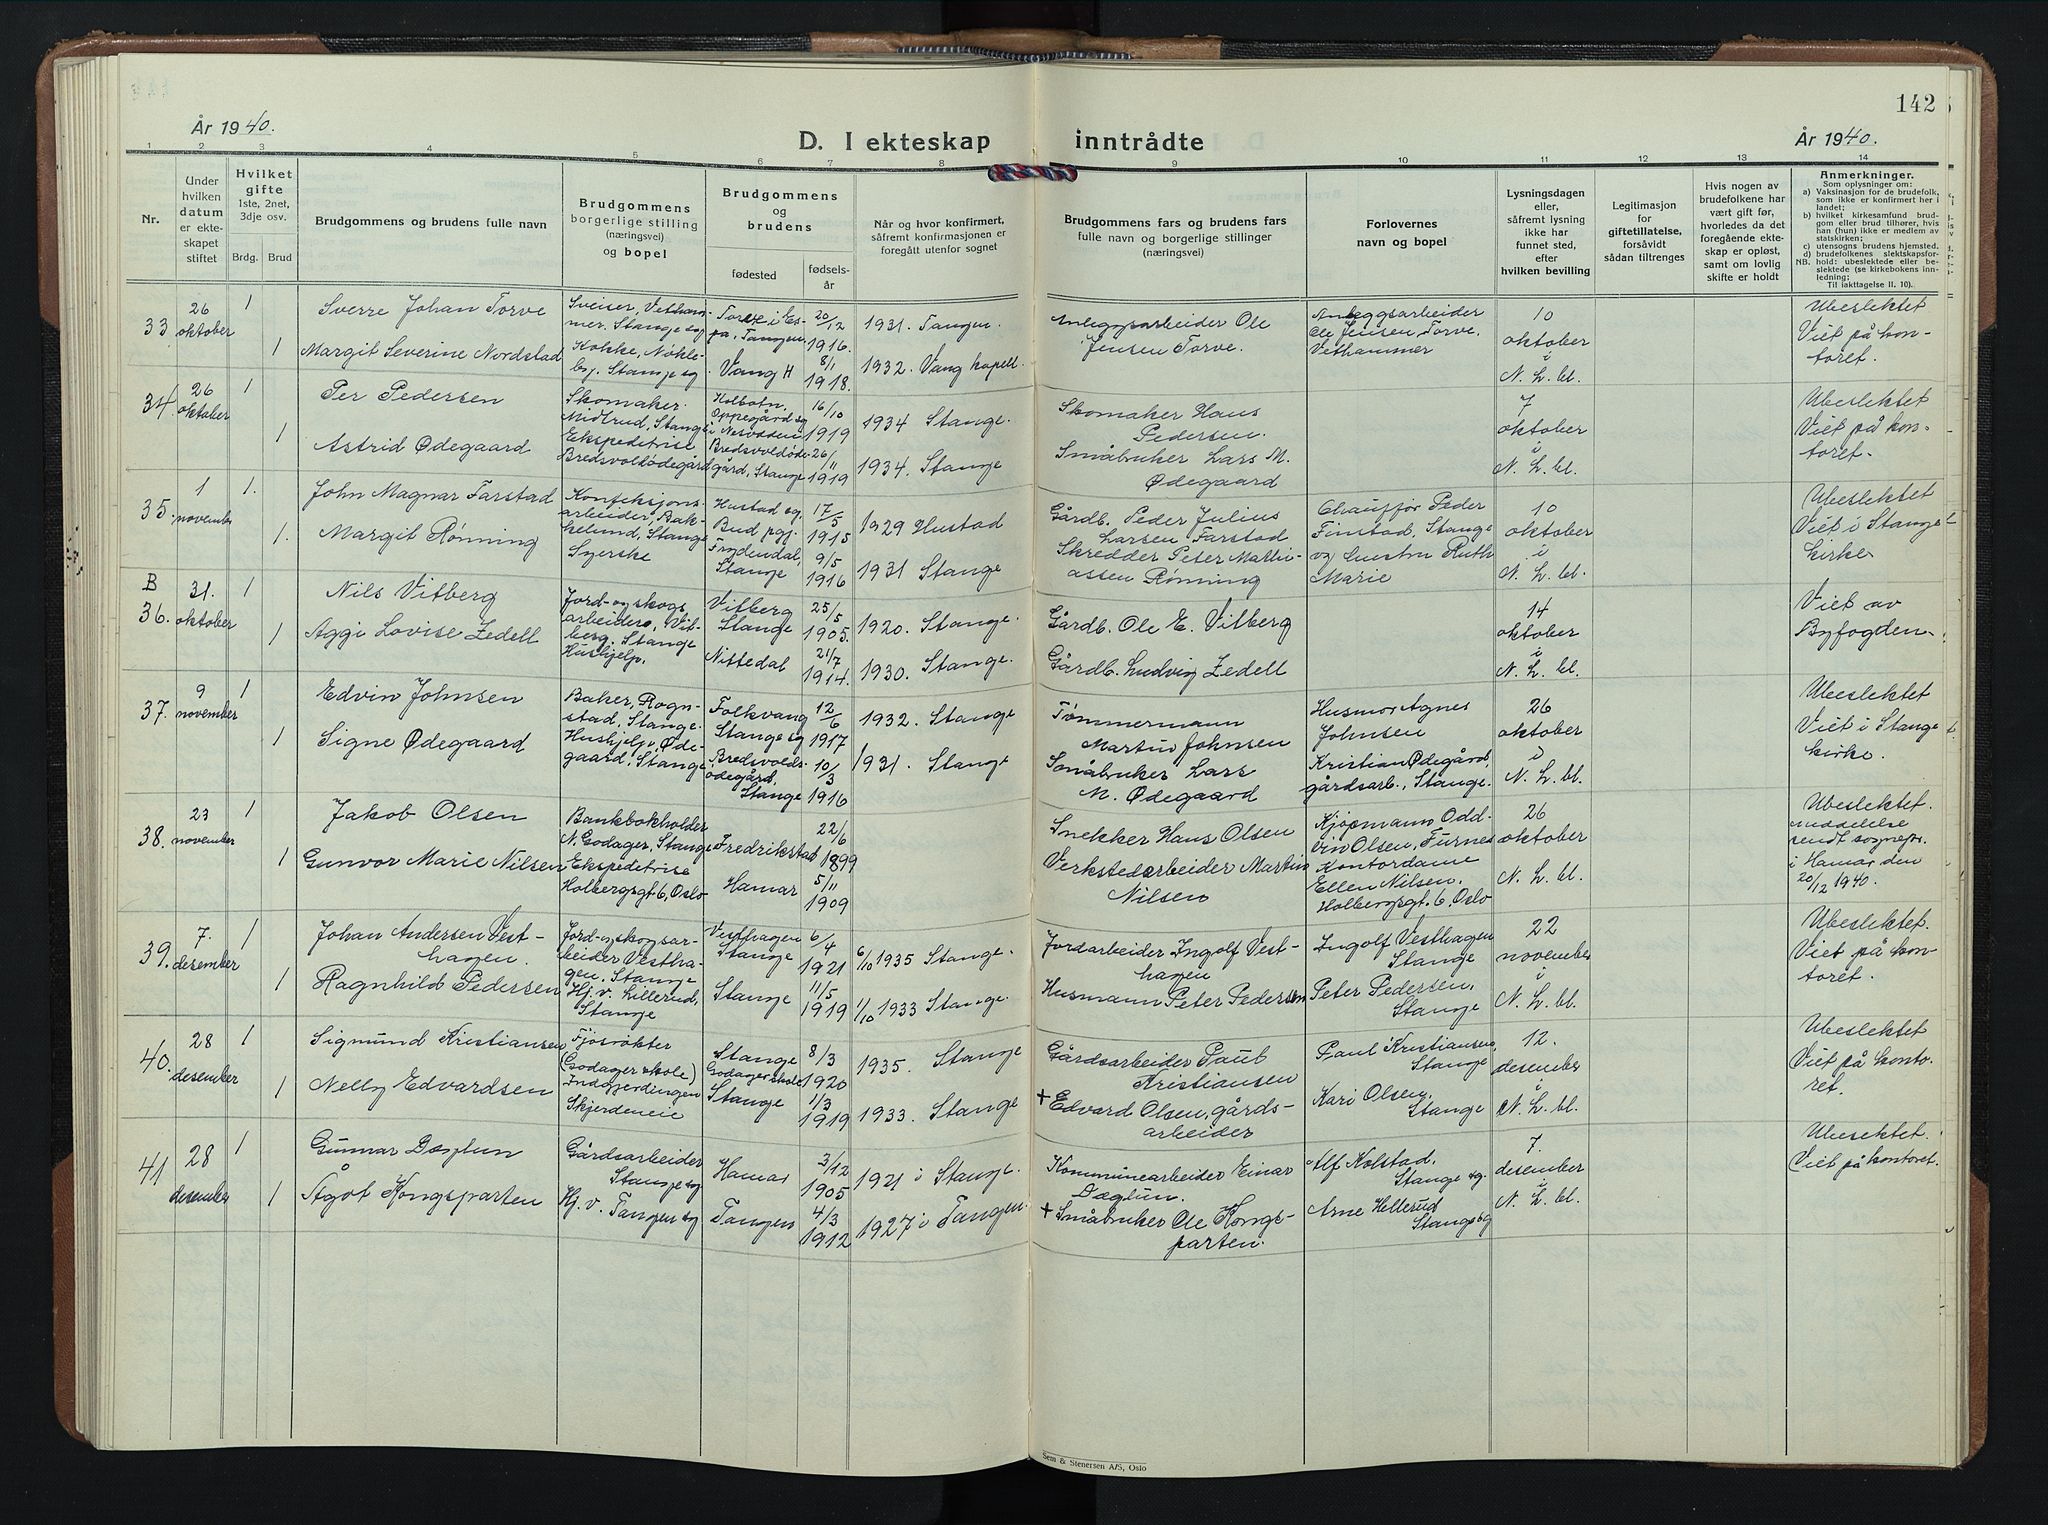 142
År 1940.
D. I ekteskap inntrådte
År 1940.
1 2 3 4 5 6 7 8 9 10 11 12 13 14
Nr.
Under hvilken datum er ekteskapet stiftet
Hvilket gifte 1ste, 2net, 3dje osv.
Brdg. Brud
Brudgommens og brudens fulle navn
Brudgommens borgerlige stilling (næringsvei) og bopel
Brudgommens og brudens
fødested
fødselsår
Når og hvor konfirmert, såfremt konfirmasjonen er foregått utenfor sognet
Brudgommens fars og brudens fars fulle navn og borgerlige stillinger (næringsvei)
Forlovernes navn og bopel
Lysningsdagen eller, såfremt lysning ikke har funnet sted, efter hvilken bevilling
Legitimasjon for giftetillatelse, forsåvidt sådan tiltrenges
Hvis nogen av brudefolkene har vært gift før, hvorledes da det foregående ekteskap er opløst, samt om lovlig skifte er holdt
Anmerkninger.
Som oplysninger om:
a) Vaksinasjon for de brudefolk, som ikke er konfirmert her i landet;
b) hvilket kirkesamfund brudgom eller brud tilhører, hvis han (hun) ikke er medlem av statskirken;
c) utensogns brudens hjemsted.
d) brudefolkenes slektskapsforhold: ubeslektede eller beslektede (se kirkebokens innledning;
NB.
Til iakttagelse II. 10).
33 26 oktober 1 Sverre Johan Torve
Sveiser, Vethammer. Stange sg
Torve i Espa, Tangen 20/12 1916.
1931. Tangen.
Anleggsarbeider Ole Jensen Torve.
Anleggsarbeider Ole Jensen Torve, Vethammer
10 oktober i N. H. bl.
Ubeslektet Viet på kontoret.
1 Margit Severine Nordstad
Kokke, Nøkleby. Stange sg
Vang H 8/1 1918.
1932. Vang kapell.
34. 26 oktober 1 Per Pedersen
Skomaker. Midtrud, Stange
Kolbotn, Oppegård sg i Nesodden 16/10 1919
1934 Stange.
Skomaker Hans Pedersen.
7 oktober i N. H. bl.
Ubeslektet Viet på kontoret.
1 Astrid Ødegaard
Ekspeditrise Bredsvoldødegård
Bredsvoldødegård, Stange 26/11 1919
1934. Stange
Småbruker Lars M. Ødegaard
35. 1 november 1. John Magnar Farstad
Konfeksjonsarbeider, Bakkelund, Stange
Hustad sg, Bud pgj. 17/5 1915
1929 Hustad
Gårdb. Peder Julius Larsen Farstad
Chauffør Peder Finstad, Stange og hustru Ruth Marie
10 oktober i N. H. bl.
Ubeslektet Viet i Stange kirke
1. Margit Rønning
Syerske
Frydendal, Stange 9/5 1916
1931 Stange
Skredder Peter Martiassen Rønning
B
36. 31. oktober 1 Nils Vitberg
Jord- og skogsarbeider, Vitberg. Stange
Vitberg Stange 25/5 1905.
1920. Stange.
Gårdb. Ole E. Vitberg
14 oktober i N. H. bl.
Viet av Byfogden
1 Aggi Lovise Zedell
Hushjelp.
Nittedal 21/7 1914.
1930. Stange.
Gårdb. Ludvig Zedell
37. 9 november 1 Edvin Johnsen
Baker, Rognstad, Stange.
Folkvang Stange sg 12/6 1917
1932. Stange
Tømmermann Martin Johnsen
Husmor Agnes Johnsen
26 oktober i N. H. bl.
Ubeslektet Viet i Stange kirke.
1 Signe Ødegaard
Hushjelp, Ødegaard, Stange
Bredsvoldsødegård Stange 10/3 1916
1931. Stange
Småbruker Lars M. Ødegaard
Kristian Ødegård, gårdsarb., Stange.
38. 23 november 1 Jakob Olsen
Bankbokholder N. Godager, Stange
Fredrikstad 22/6 1899
Snekker Hans Olsen
Kjøpmann Oddvin Olsen, Furnes
26 oktober N. H. bl.
Ubeslektet. Meddelelse sendt sognepr. i Hamar den 20/12 1940.
1 Gunvor Marie Nilsen
Ekspeditrise Holbergsgt. 6, Oslo
Hamar 5/11 1909
Verkstedarbeider Martin Nilsen
Kontordame Ellen Nilsen. Holbergsgt. 6, Oslo
39. 7. desember 1 Johan Andersen Vesthagen.
Jord- og skogsarbeider Vesthagen. Stange
Vesthagen Stange 6/4 1921
6/10 1935 Stange.
Jordarbeider Ingolf Vesthagen
Ingolf Vesthagen Stange
22 november i N. H. bl.
Ubeslektet. Viet på kontoret.
1 Ragnhild Pedersen
Hj. v. Lillerud, Stange
Stange 11/5 1919
1/10 1933 Stange.
Husmann Peter Pedersen
Peter Pedersen, Stange
40. 28 desember 1 Sigmund Kristiansen
Fjøsrøkter (Godager skole)
Stange Godager skole 8/3 1920
1935. Stange
Gårdsarbeider Paul Kristiansen
Paul Kristiansen, Stange
12. desember i N. H. bl.
Ubeslektet Viet på kontoret.
1 Nelly Edvardsen
Indgjerdingen Skjerdeneie
Stange 1/3 1919
1933. Stange
+ Edvard Olsen, gårdsarbeider
Kari Olsen, Stange
41 28 desember 1 Gunnar Dæglun
Gårdsarbeider Stange sg
Hamar 3/12 1905
1921 i Stange.
Kommunearbeider Einar Dæglun.
Alf Kolstad, Stange sg.
7. desember i N. H. bl.
Ubeslektet. Viet på kontoret.
1 Ågot Kongsparten
Hj. v. Tangen sg
Tangen 4/3 1912
1927 i Tangen.
+ Småbruker Ole Kongsparten.
Arne Hellerud Stange sg
Sem & Stenersen A/S, Oslo